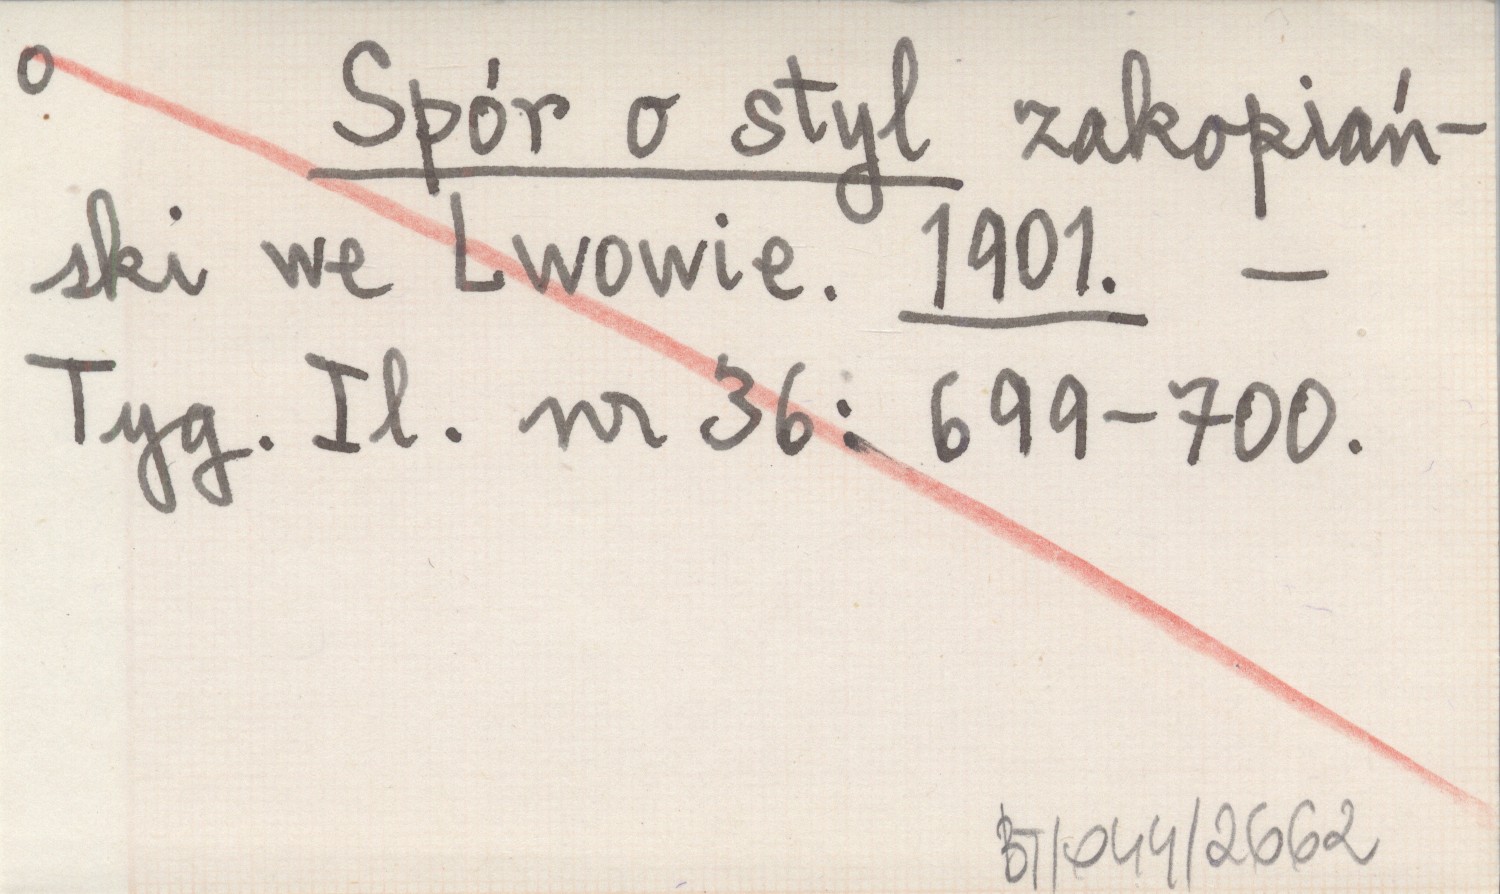 o Spór o styl zakopiań-
ski we Lwowie. 1901. —
Tyg. Il. nr 36: 699-700.
BT/044/2662